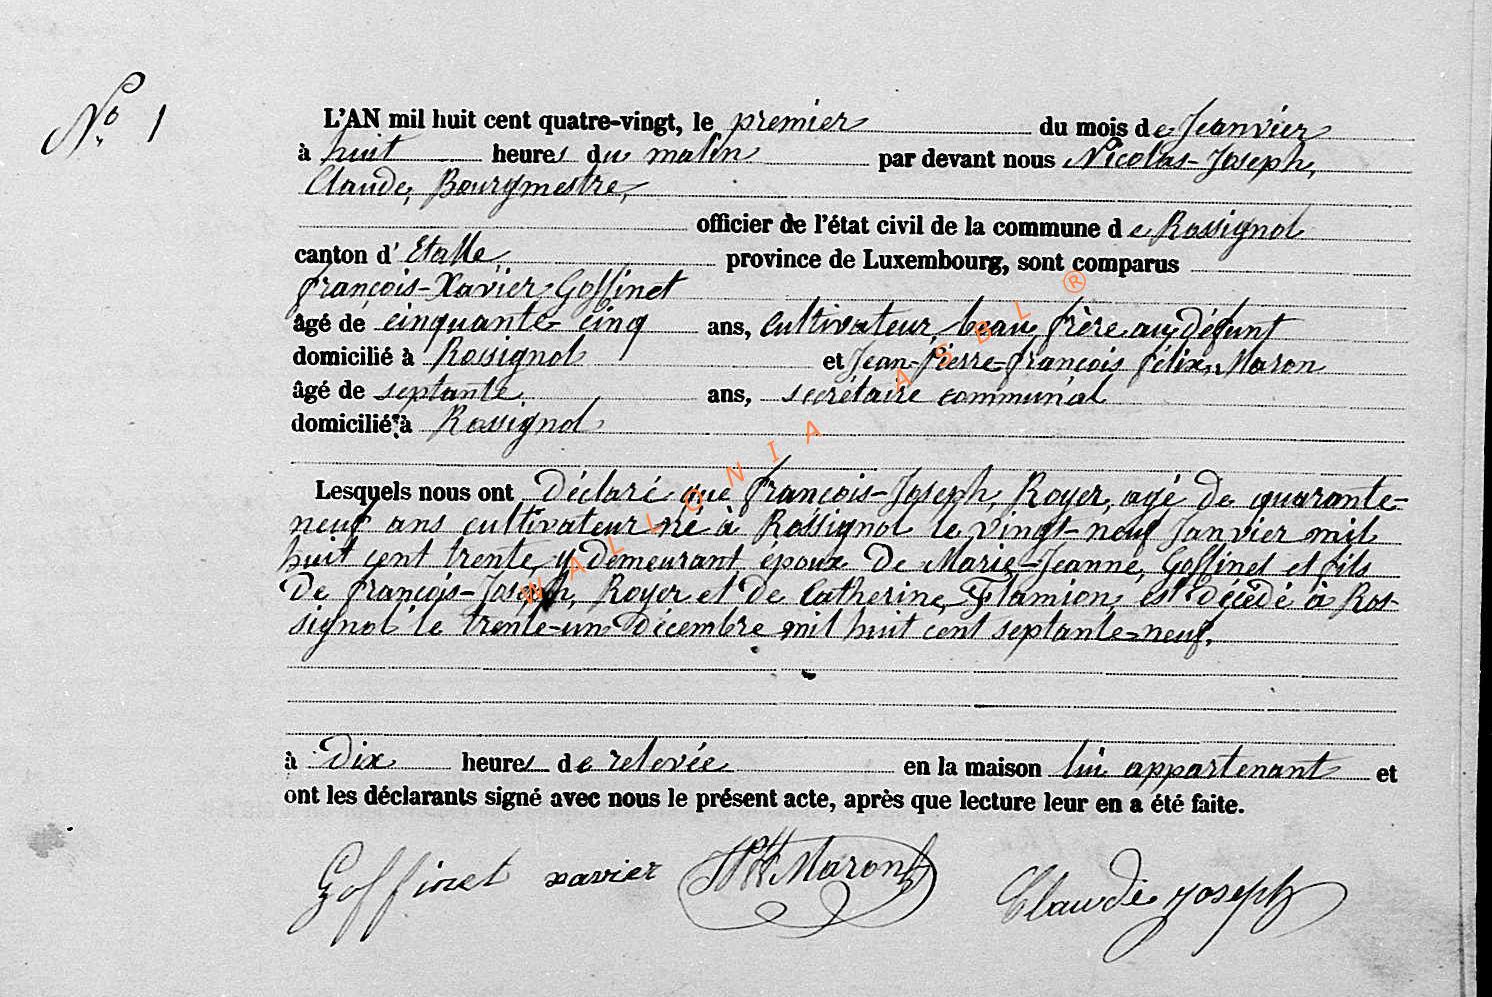 N° 1
L'AN mil huit cent quatre-vingt, le premier du mois de Janvier
à huit heures du matin par devant nous Nicolas-Joseph,
Claude, Bourgmestre,
officier de l'état civil de la commune de Rossignol
canton d'Etalle province de Luxembourg, sont comparus
françois-Xavier Goffinet
âgé de cinquante-cinq ans, cultivateur beau frère au défunt
domicilié à Rossignol et Jean-Pierre-françois félix, Maron
âgé de septante ans, secrétaire communal
domicilié à Rossignol
Lesquels nous ont Déclaré que françois-Joseph, Royer, agé de quarante-
neuf ans cultivateur né à Rossignol le vingt-neuf Janvier mil
huit cent trente, y demeurant époux de Marie-Jeanne, Goffinet et fils
De françois-Joseph, Royer et de Catherine, Flamion, est Décédé à Ros-
signol le trente-un Décembre mil huit cent septante-neuf.
à Dix heures de relevée en la maison lui appartenant et
ont les déclarants signé avec nous le présent acte, après que lecture leur en a été faite.
Goffinet xavier Maron Claude joseph
WALLONIA ASBL ®